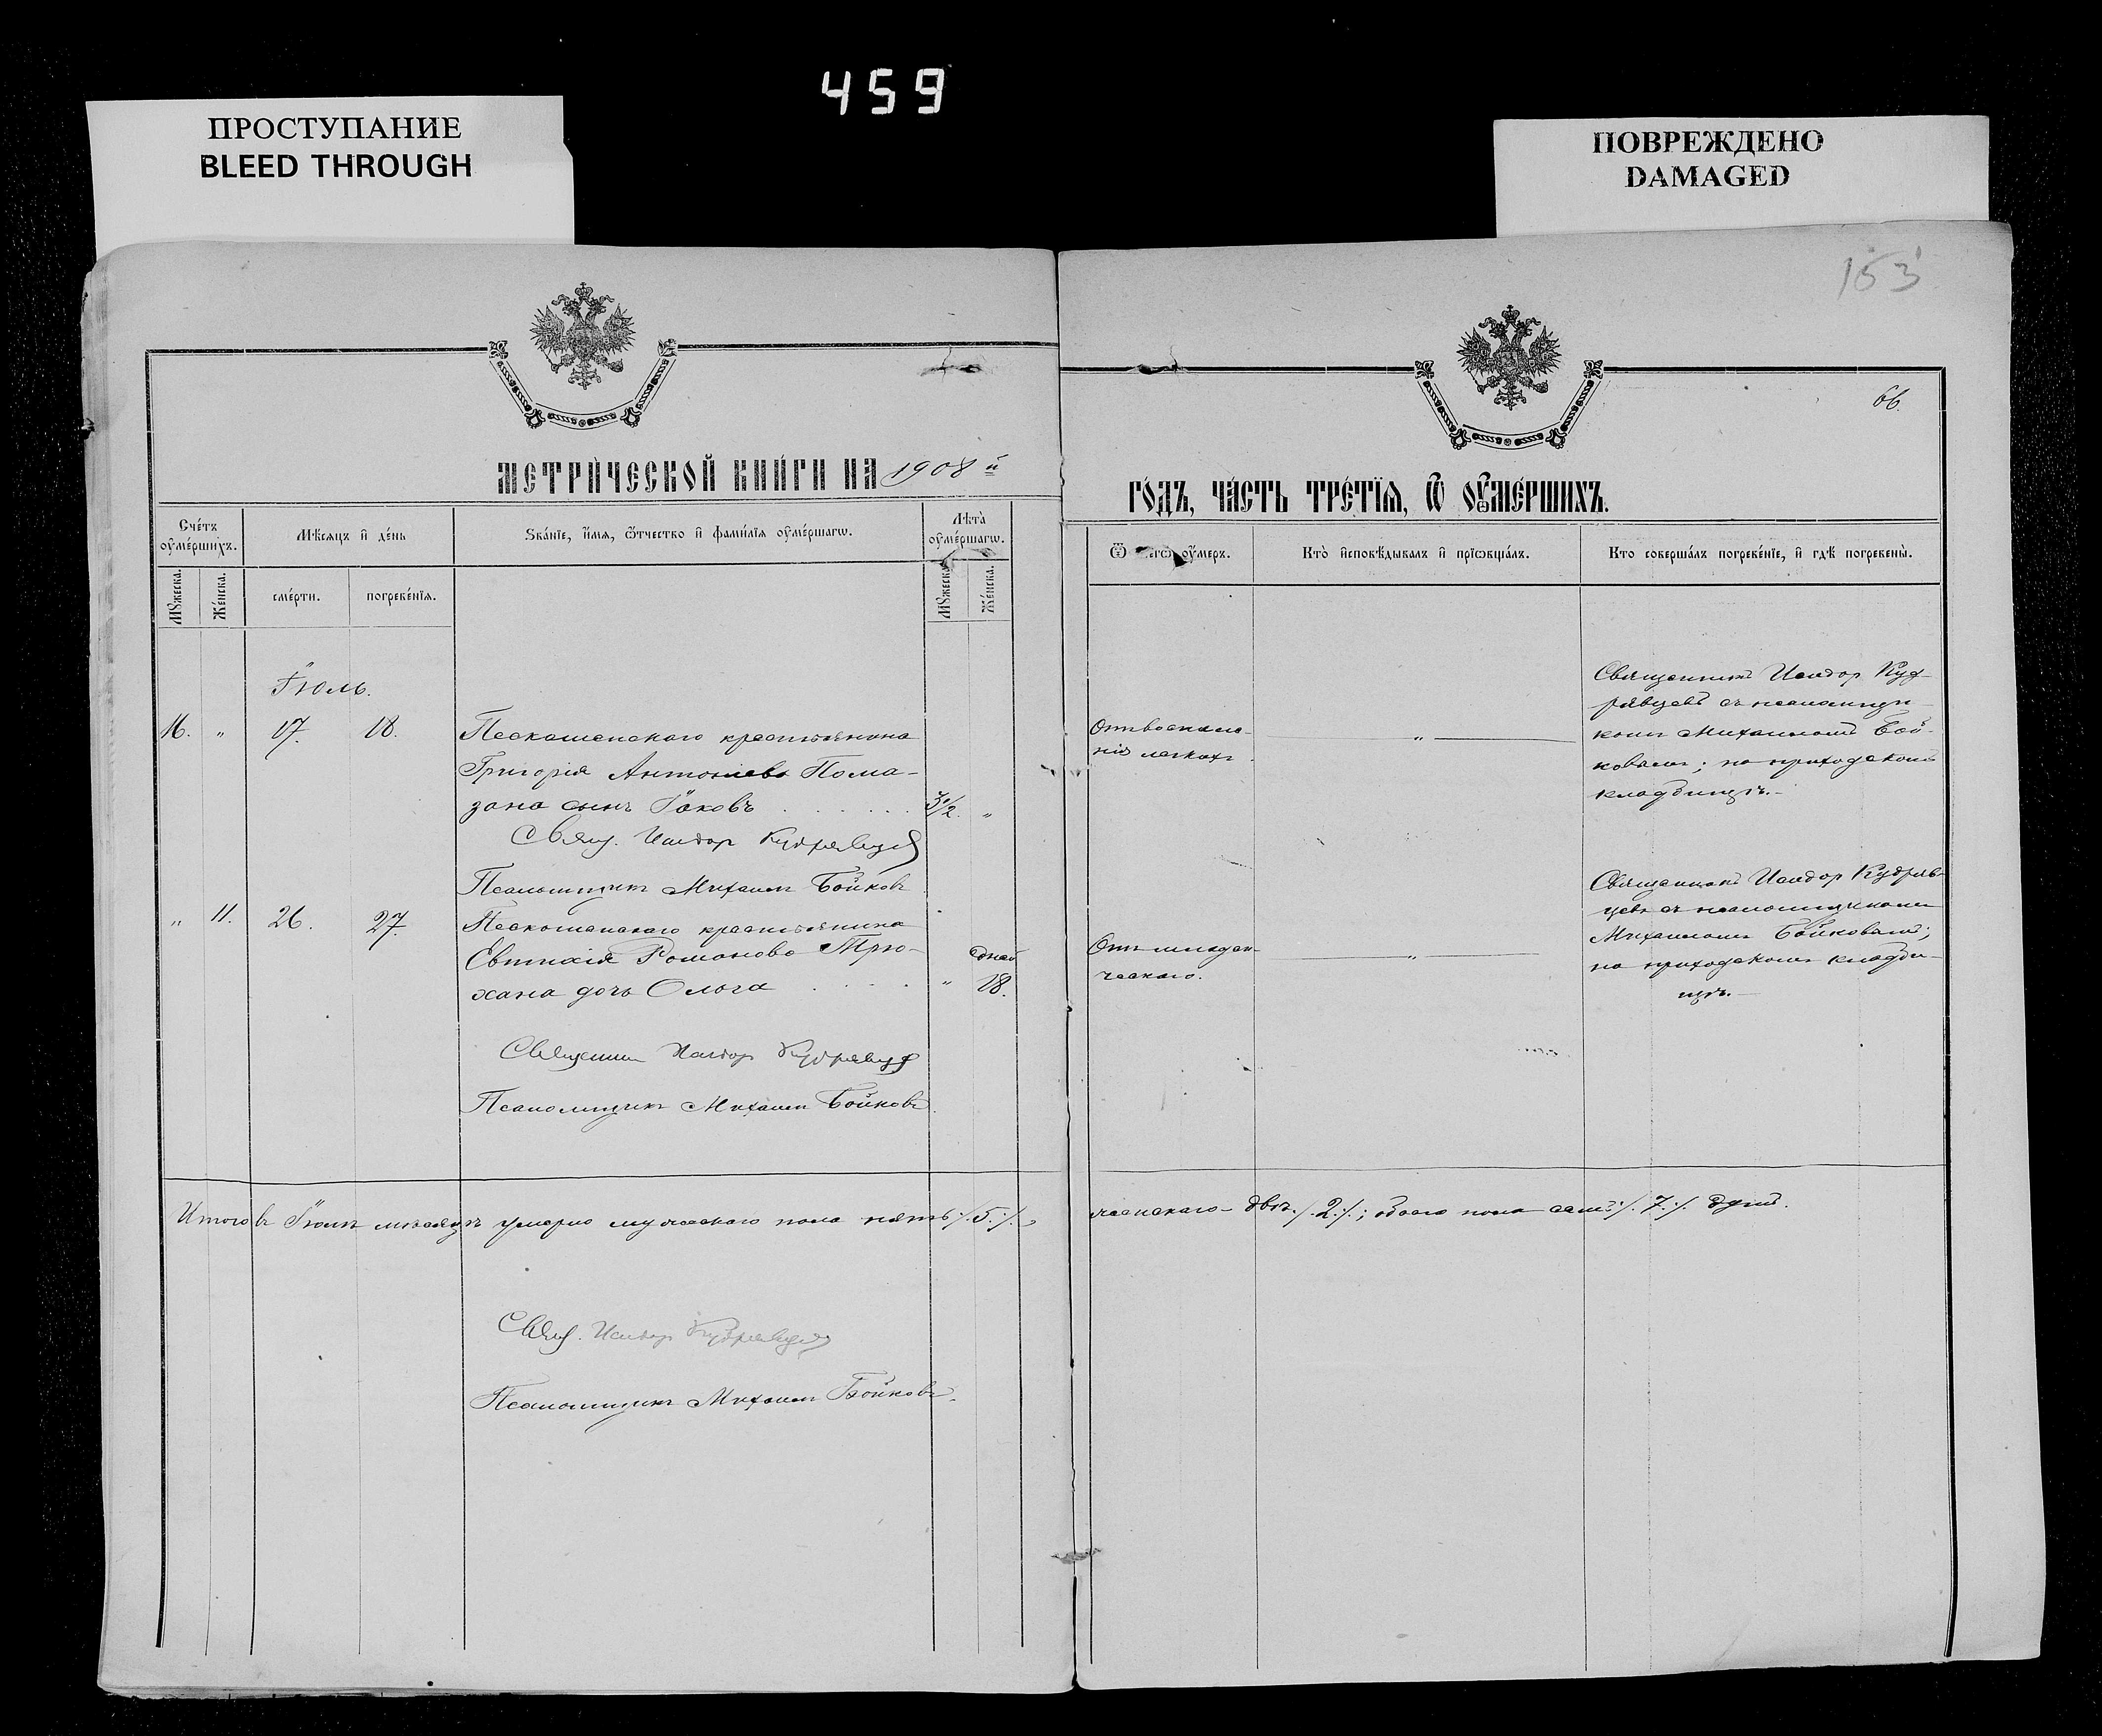 459
ПРОСТУПАНИЕ
BLEED THROUGH
ПОВРЕЖДЕНО
DAMAGED
153
66.
МЕТРИ́ЧЕСКОЙ КНИ́ГИ НА 1908 й
ГО́ДЪ, ЧА́СТЬ ТРЕ́ТЇѦ, Ѿ ОУ҆МЕ́РШИХЪ.
Сче́тъ оу҆ме́ршихъ.
Мѣ́сѧцъ и҆ де́нь
Ѕва́нїе, и҆́мѧ, ѻ҆́тчество и҆ фами́лїѧ оу҆ме́ршагѡ.
Лѣта̀ оу҆ме́ршагѡ.
Мꙋ́жеска.
Же́нска.
сме́рти.
погребе́нїѧ.
Мꙋ́жеска
Же́нска.
Кто̀ и҆сповѣ́дывалъ и҆ прїѡбща́лъ.
Кто соверша́лъ погребе́нїе, и҆ гдѣ̀ погребены̀.
Іюль.
16. " 17. 18. Пескошенскаго крестьянина
Григорія Антоніева Пома-
зана сынъ Іаковъ 3 1/2. "
Свящ. Исидор Кудрявцев
Псаломщикъ Михаилъ Бойковъ
Отъ воспале-
нія легкихъ.
"
Священникъ Исидор Куд-
рявцевъ съ псаломщи-
комъ Михаиломъ Бой-
ковымъ; на приходскомъ
кладбищѣ.-
" 11. 26. 27. Пескошенскаго крестьянина
Евтихія Романова Трю-
хана дочь Ольга " дней 18.
Священник Исидор Кудрявцев
Псаломщикъ Михаилъ Бойковъ.
Отъ младен-
ческаго.
"
Священникъ Исидор Кудряв-
цевъ съ псаломщикомъ
Михаиломъ Бойковымъ;
на приходскомъ кладби-
щѣ.-
Итого въ Іюлѣ мѣсяцѣ умерло мужескаго пола пять ·/.5.·/.,
женскаго - двѣ ·/.2.·/.; обоего пола семь ·/.7.·/. душъ.
Свящ. Исидор Кудрявцев
Псаломщикъ Михаилъ Бойковъ.